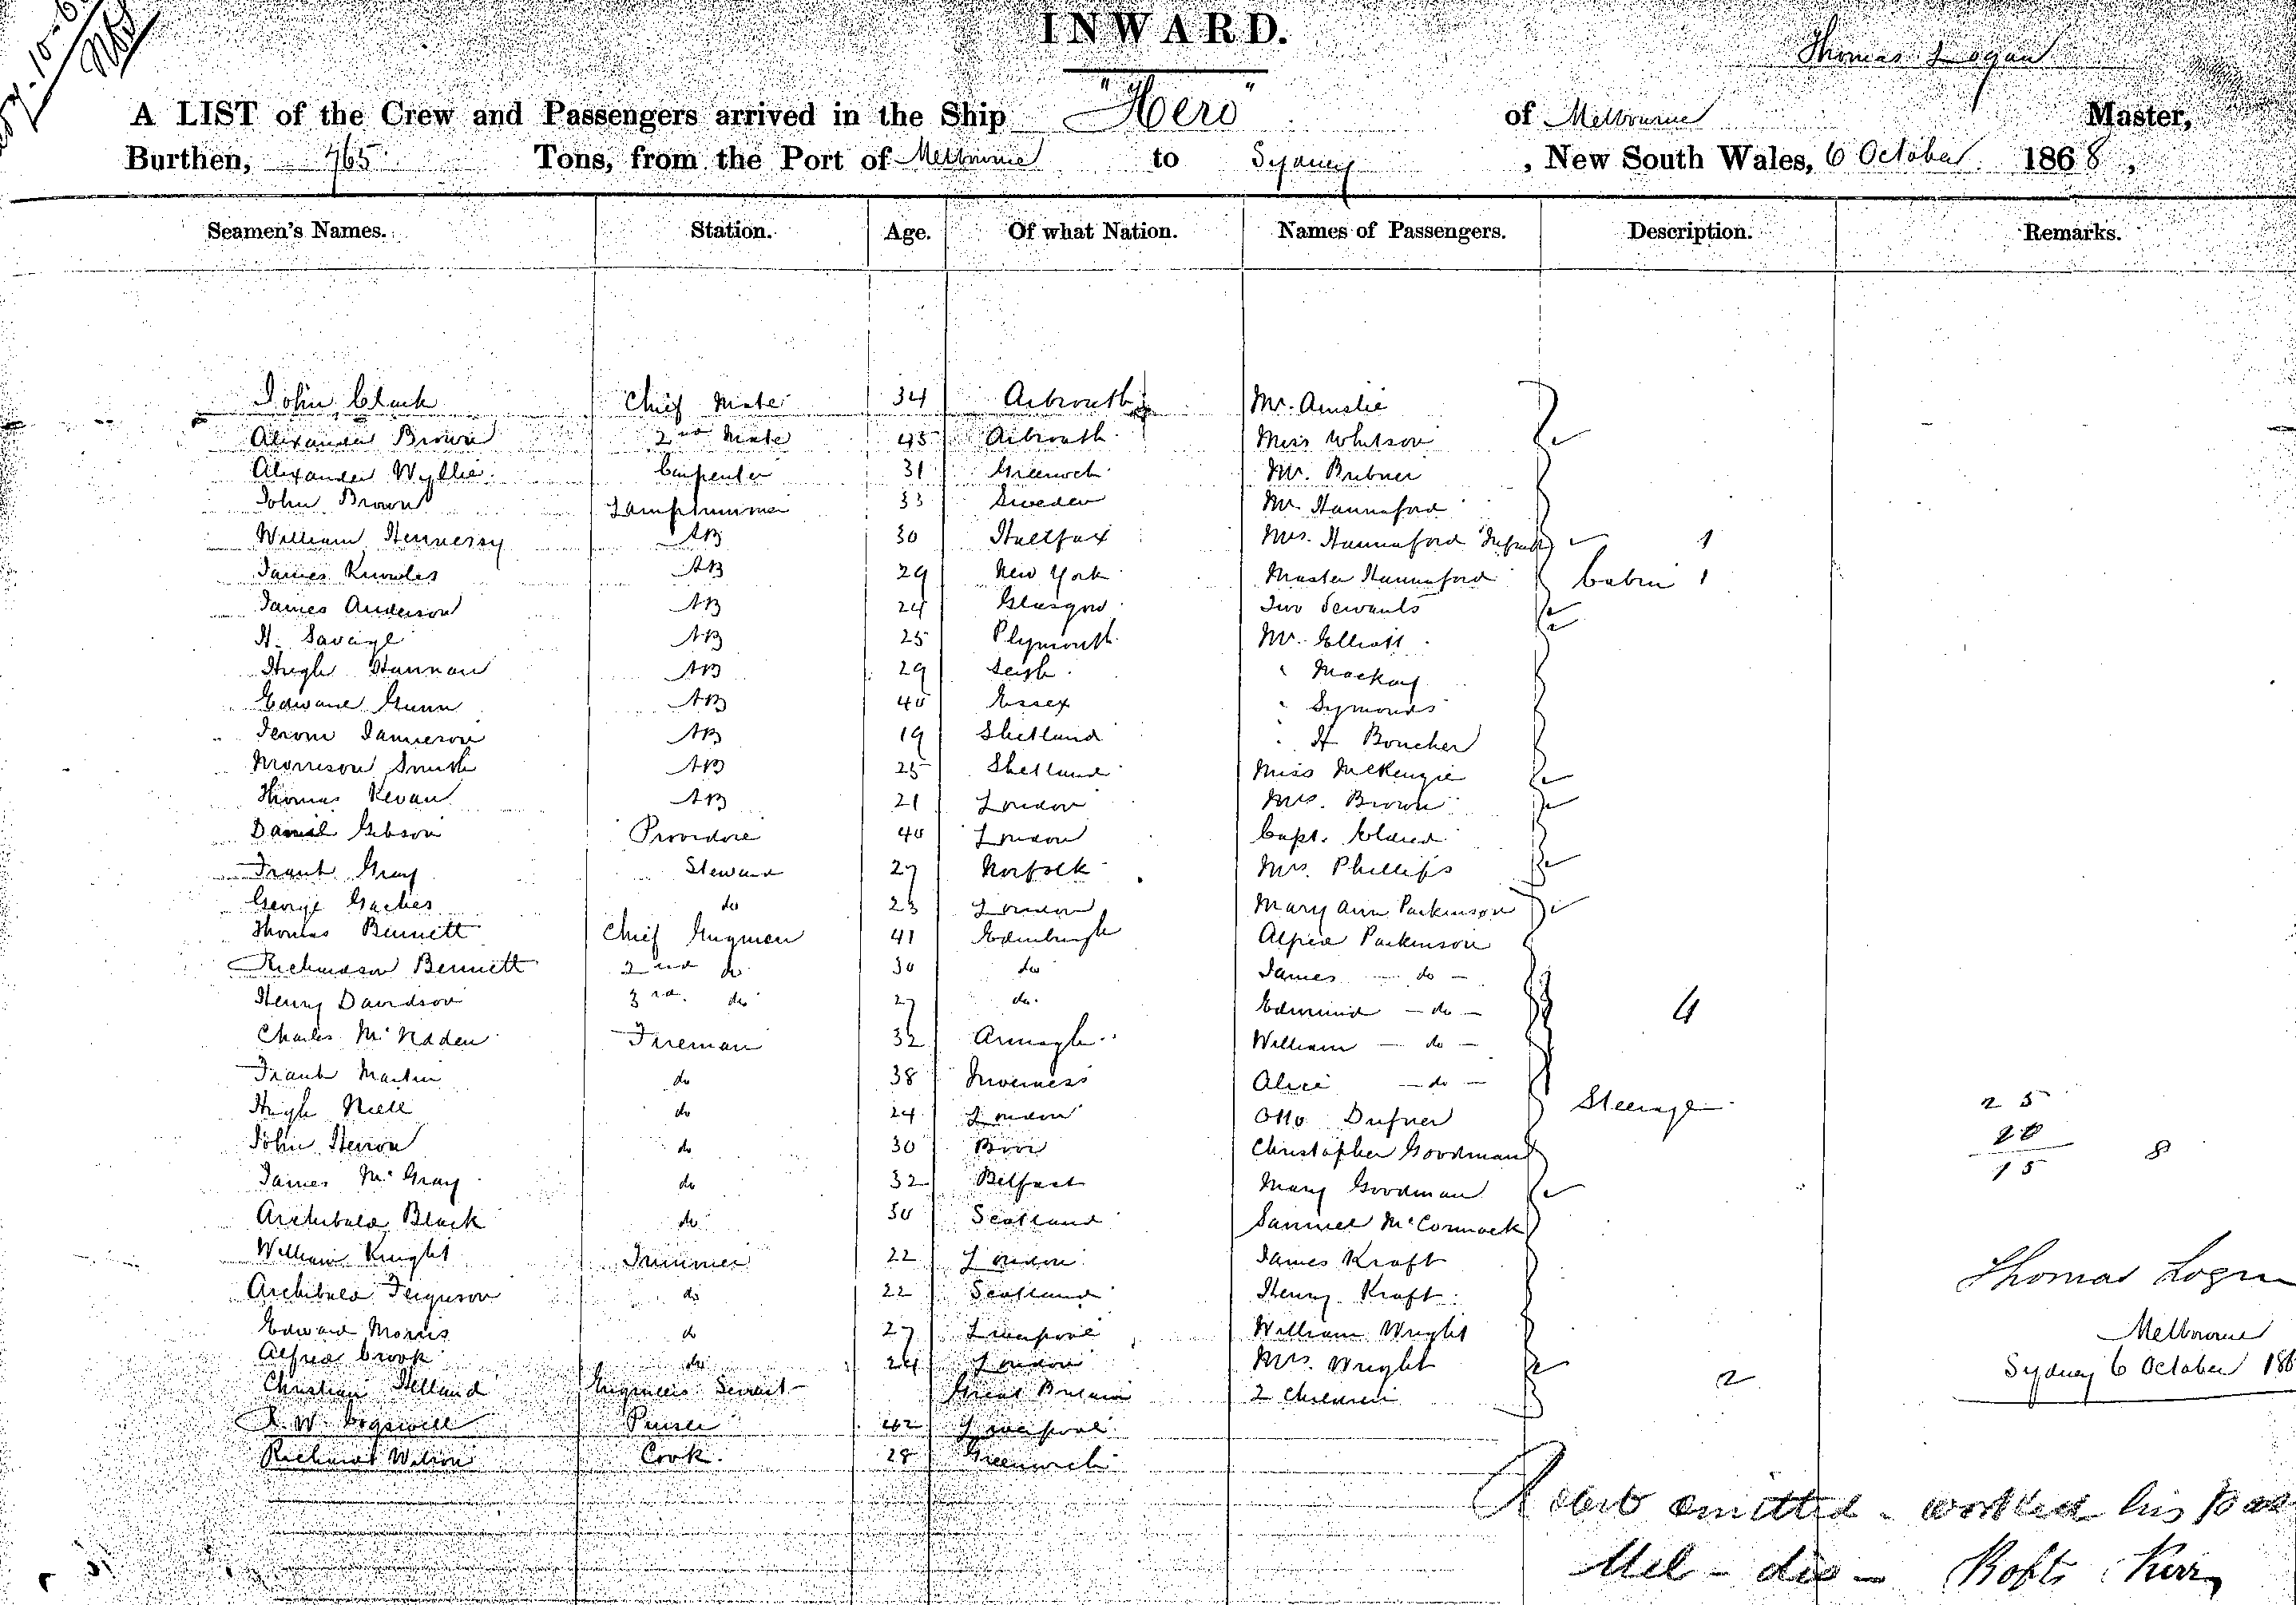 INWARD.
Thomas Logan
A LIST of the Crew and Passengers arrived in the Ship "Hero" of Melbourne Master,
Burthen, 765 Tons, from the Port of Melbourne to Sydney , New South Wales, 6 October 1868 ,
Seamen's Names. Station. Age. Of what Nation. Names of Passengers. Description. Remarks.
John Clark Chief Mate 34 Arbroath Mr. Ainslie
Alexander Brown 2nd Mate 45 Arbroath Miss Whitson
Alexander Wyllie Carpenter 31 Greenock Mr. Bubner
John Brown Lamptrimmer 33 Sweden Mr. Hannaford
William Hennessy AB 30 Halifax Mrs. Hannaford Infant 1
James Knowles AB 29 New York Master Hannaford Cabin 1
James Anderson AB 24 Glasgow Two Servants
H. Savage AB 25 Plymouth Mr. Elliott
Hugh Hannan AB 29 Leith " Mackay
Edward Gunn AB 40 Essex " Symonds
Jerom Jamieson AB 19 Shetland " H Boucher
Morrison Smith AB 25 Shetland Miss McKenzie
Thomas Kevan AB 21 London Mrs. Brown
Daniel Gibson Providore 40 London Capt. Eldred
Frank Gray Steward 27 Norfolk Mrs. Phillips
George Gaches do 23 London Mary Ann Parkinson
Thomas Bennett Chief Engineer 41 Edinburgh Alfred Parkinson
Richardson Bennett 2nd do 30 do James - do -
Henry Davidson 3rd do 27 do. Edmund - do - 4
Charles McFadden Fireman 32 Armagh William - do -
Frank Martin do 38 Inverness Alice - do -
Hugh Niell do 24 London Otto Dufner Steerage 25
John Herron do 30 Christopher Goodman 8
James McGray do 32 Belfast Mary Goodman 15
Archibald Black do 30 Scotland Samuel McCormack
William Knight Trimmer 22 London James Kraft Thomas Logan
Archibald Ferguson do 22 Scotland Henry Kraft
Edward Morris do 27 Liverpool William Wright Melbourne
Alfred Crook do 24 London Mrs. Wright Sydney 6 October 186
Christian Helland Engineers Servant Great Britain 2 Children 2
R. W. Cogswell Purser 42 Liverpool
Richard Wilson Cook. 28 Greenwich
omitted - worked his pas
Mel - dis - Robt. Kerr